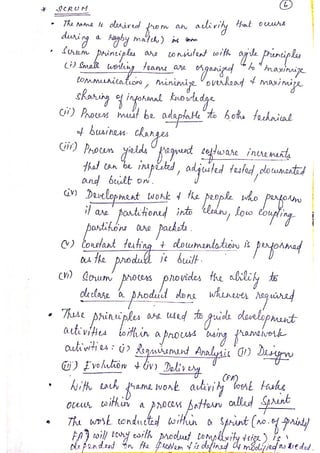 6
* SCRUM
• The name is derived from an activity that occurs
during a rugby match)
• Scrum principles are consistent with agile principles
(i) Small working teams are organized "to "maximize
communication, minimize overhead & maximize
sharing of informal knowledge
(ii) Process must be adaptable to both technical
& business changes
(iii) Process yields frequent software increments
that can be inspected, adjusted tested, documented
and built on.
(iv) Development work & the people who perform
it are partitioned into clean, low coupling
partitions are packets.
(v) Constant testing & documentation is performed
as the product is built.
(vi) Scrum process provides the ability to
declare a product done whenever required
• These principles are used to guide development
activities within a process using framework
activities: (i) Requirement Analysis (ii) Design
(iii) Evolution & (iv) Delivery
• With each frame work activity (FA) work tasks
occur within a process pattern called Sprint
• The work conducted within a Sprint (no. of sprints/
FA) will vary with product complexity & size) is
dependent on the problem & is defined & modified as needed.